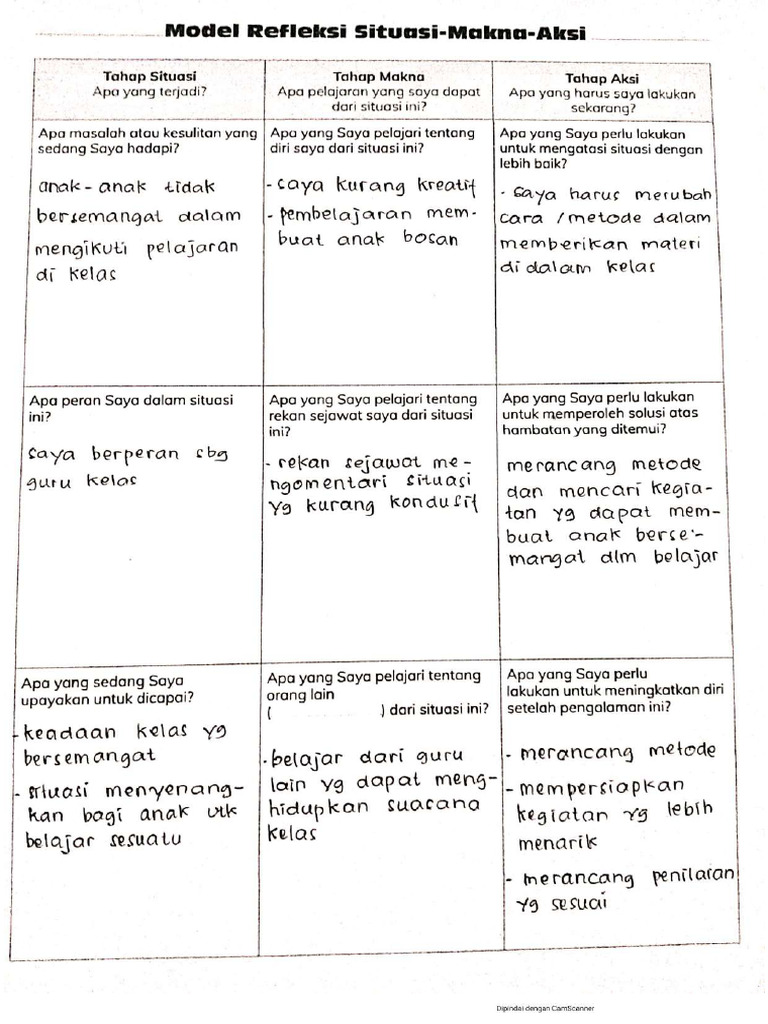 Model Refleksi Situasi-Makna-Aksi
Tahap Situasi
Apa yang terjadi?
Tahap Makna
Apa pelajaran yang saya dapat
dari situasi ini?
Tahap Aksi
Apa yang harus saya lakukan
sekarang?
Apa masalah atau kesulitan yang
sedang Saya hadapi?
anak-anak tidak
bersemangat dalam
mengikuti pelajaran
di kelas
Apa yang Saya pelajari tentang
diri saya dari situasi ini?
- saya kurang kreatif
- pembelajaran mem-
buat anak bosan
Apa yang Saya perlu lakukan
untuk mengatasi situasi dengan
lebih baik?
- saya harus merubah
cara / metode dalam
memberikan materi
di dalam kelas
Apa peran Saya dalam situasi
ini?
saya berperan sbg
guru kelas
Apa yang Saya pelajari tentang
rekan sejawat saya dari situasi
ini?
- rekan sejawat me-
ngomentari situasi
yg kurang kondusif
Apa yang Saya perlu lakukan
untuk memperoleh solusi atas
hambatan yang ditemui?
merancang metode
dan mencari kegia-
tan yg dapat mem-
buat anak berse-
mangat dlm belajar
Apa yang sedang Saya
upayakan untuk dicapai?
- keadaan kelas yg
bersemangat
- situasi menyenang-
kan bagi anak utk
belajar sesuatu
Apa yang Saya pelajari tentang
orang lain
( ) dari situasi ini?
- belajar dari guru
lain yg dapat meng-
hidupkan suasana
kelas
Apa yang Saya perlu
lakukan untuk meningkatkan diri
setelah pengalaman ini?
- merancang metode
- mempersiapkan
kegiatan yg lebih
menarik
- merancang penilaian
yg sesuai
Dipindai dengan CamScanner